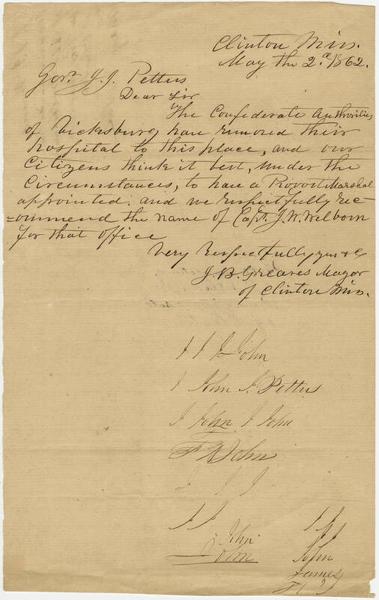 Clinton Miss.
May the 2d. 1862.
Gov. J. J. Pettus
Dear Sir
The Confederate Authorities
of Vicksburg have removed their
hospital to this place, and our
Citizens think it best, under the
Circumstances, to have a Provost Marshal
appointed. and we respectfully rec-
=ommend the name of Capt. J. W. Welborn
for that office
Very respectfully yours &c
J. B. Greaves Mayor
of Clinton Miss.
J J John
J John J. Pettus
J John J John
John
J J
J J
John
John
J J
John
James